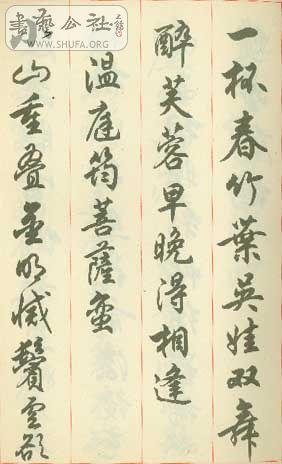 書藝公社
WWW.SHUFA.ORG
一杯春竹葉吳娃双舞
醉芙蓉早晚得相逢
溫庭筠菩薩蠻
山重疊金明滅鬢雲欲